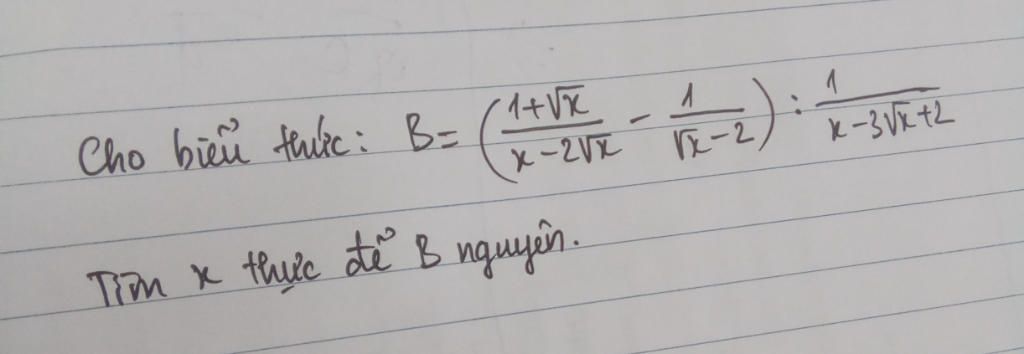 Cho biểu thức: B = ( (1+√x)/(x-2√x) - 1/(√x-2) ) : 1/(x-3√x+2)
Tìm x thực để B nguyên.